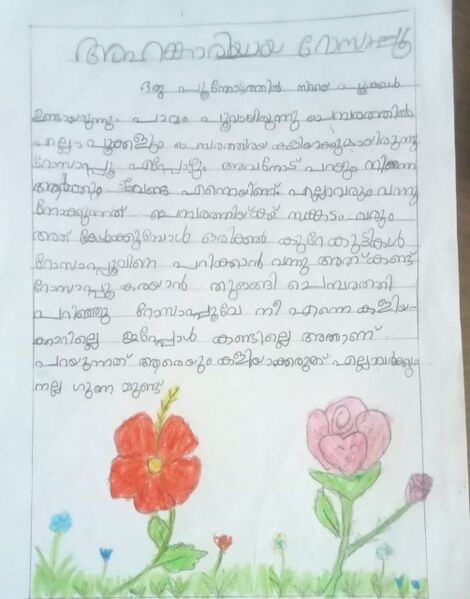 അഹങ്കാരിയായ റോസാപ്പൂ
ഒരു പൂന്തോട്ടത്തിൽ നിറയെ പൂക്കൾ
ഉണ്ടായിരുന്നു. പാവം പൂവായിരുന്നു ചെമ്പരത്തിൽ
എല്ലാ പൂക്കളും ചെമ്പരത്തിയെ കളിയാക്കുമായിരുന്നു
റോസാപ്പൂ എപ്പോളും അവനോട് പറയും നിന്നെ
ആർക്കും വേണ്ട എന്നെയാണ് എല്ലാവരും വന്നു
നോക്കുന്നത് ചെമ്പരത്തിയ്ക്ക് സങ്കടം വരും
അത് കേൾക്കുമ്പോൾ ഒരിക്കൽ കുറേ കുട്ടികൾ
റോസാപ്പൂവിനെ പറിക്കാൻ വന്നു അത് കണ്ട്
റോസാപ്പൂ കരയാൻ തുടങ്ങി ചെമ്പരത്തി
പറിഞ്ഞു റോസാപ്പൂവേ നീ എന്നെ കളിയാ
ക്കാറില്ലെ ഇപ്പോൾ കണ്ടില്ലെ അതാണ്
പറയുന്നത് ആരെയും കളിയാക്കരുത് എല്ലാവർക്കും
നല്ല ഗുണ മുണ്ട്